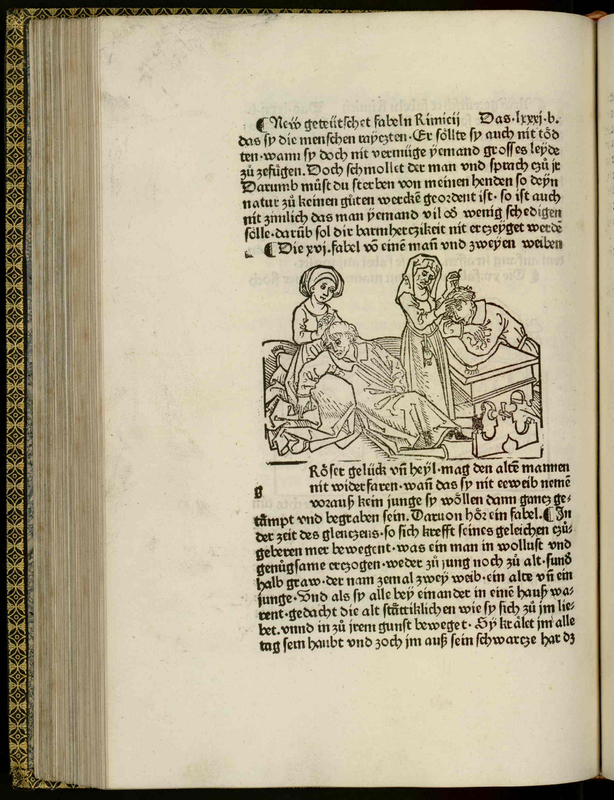 ¶ New geteütschet fabeln Rimicij Das · lxxxj · b.
das sy die menschen rayczten · Er söllte sy auch nit töd
ten · wann sy doch nit vermüge yemand grosses leyde
zů zefügen. Doch schmollet der man vnd sprach czů jr
Darumb můst du sterben von meinen henden so deyn
natur zů keinen gůten wercken geordent ist · so ist auch
nit zimlich das man yemand vil od wenig schedigen
sölle · darūb sol dir barmherczikeit nit erczeyget werdē
¶ Die xvj · fabel vō einē mañ vnd zweyen weiben
g
Röser gelück vñ heyl · mag den altē mannen
nit widerfaren · wañ das sy nit eeweib nemē
vorauß kein junge sy wöllen dann gancz ge-
tåmpt vnd begraben sein. Daruon hör ein fabel. ¶ In
der zeit des glenczens · so sich krefft seines geleichen czů-
geberen mer bewegent · was ein man in wollust vnd
genůgsame erczogen · weder zů jung noch zů alt · sunď
halb graw · der nam zemal zwey weib · ein alte vñ ein
junge · Vnd als sy alle bey einander in einē hauß wa-
rent · gedacht die alt ståtiklichen wie sy sich zů jm lie-
bet · vnnd in zů jrem gunst beweget · Sy krålet jm alle
tag sein haubt vnd zoch jm auß sein schwarcze har dz